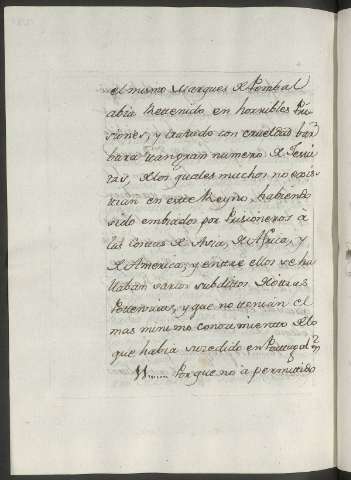 el mismo Marques de Pombal
abia Rettenido en horribles Pri-
siones, y tratado con crueldad bar-
bara tan gran numero de Jesui-
tas, de los quales muchos no exis-
tian en este Reyno, habiendo
sido embiados por Prisioneros a
las Costas de Asia, de Africa, y
de America; y enttre ellos se ha-
llaban varios subditos de otras
Pottencias, y que no tenian el
mas minimo conocimiento de lo
que habia sucedido en Porttugal?
Porque no a permittido